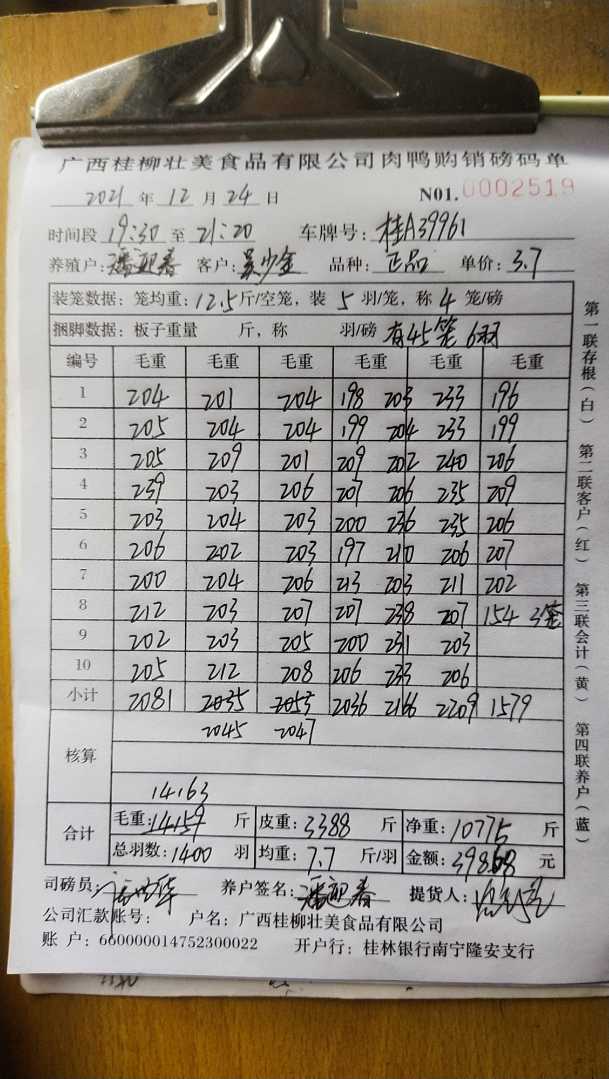 广西桂柳壮美食品有限公司肉鸭购销磅码单
2021 年 12 月 24 日 N01.0002519
时间段 19:30 至 21:20 车牌号: 桂A39961
养殖户: 潘迎春 客户: 吴少金 品种: 正品 单价: 3.7
装笼数据: 笼均重: 12.5斤/空笼, 装 5 羽/笼, 称 4 笼/磅
捆脚数据: 板子重量 斤, 称 羽/磅 有45笼 6羽
编号 毛重 毛重 毛重 毛重 毛重 毛重
1 204 201 204 198 203 233 196
2 205 204 204 199 204 233 199
3 205 209 201 209 202 240 206
4 239 203 206 207 206 235 209
5 203 204 203 200 236 235 206
6 206 202 203 197 210 206 207
7 200 204 206 213 203 211 202
8 212 203 207 207 238 207 154 3笼
9 202 203 205 200 231 203
10 205 212 208 206 233 206
小计 2081 2035 2053 2036 2166 2209 1579
2045 2047
核算
14163
合计 毛重: 14159 斤 皮重: 3388 斤 净重: 10775 斤
总羽数: 1400 羽 均重: 7.7 斤/羽 金额: 39868 元
司磅员: 养户签名: 潘迎春 提货人:
公司汇款账号: 户名: 广西桂柳壮美食品有限公司
账 户: 660000014752300022 开户行: 桂林银行南宁隆安支行
第一联存根(白) 第二联客户(红) 第三联会计(黄) 第四联养户(蓝)